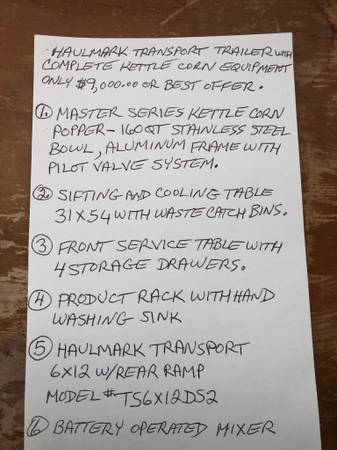 HAULMARK TRANSPORT TRAILER WITH
COMPLETE KETTLE CORN EQUIPMENT
ONLY $9,000.00 OR BEST OFFER.
1. MASTER SERIES KETTLE CORN
POPPER - 160QT STAINLESS STEEL
BOWL, ALUMINUM FRAME WITH
PILOT VALVE SYSTEM.
2 SIFTING AND COOLING TABLE
31X54 WITH WASTE CATCH BINS.
3 FRONT SERVICE TABLE WITH
4 STORAGE DRAWERS.
4 PRODUCT RACK WITH HAND
WASHING SINK
5 HAULMARK TRANSPORT
6X12 W/REAR RAMP
MODEL # TS6X12DS2
6 BATTERY OPERATED MIXER